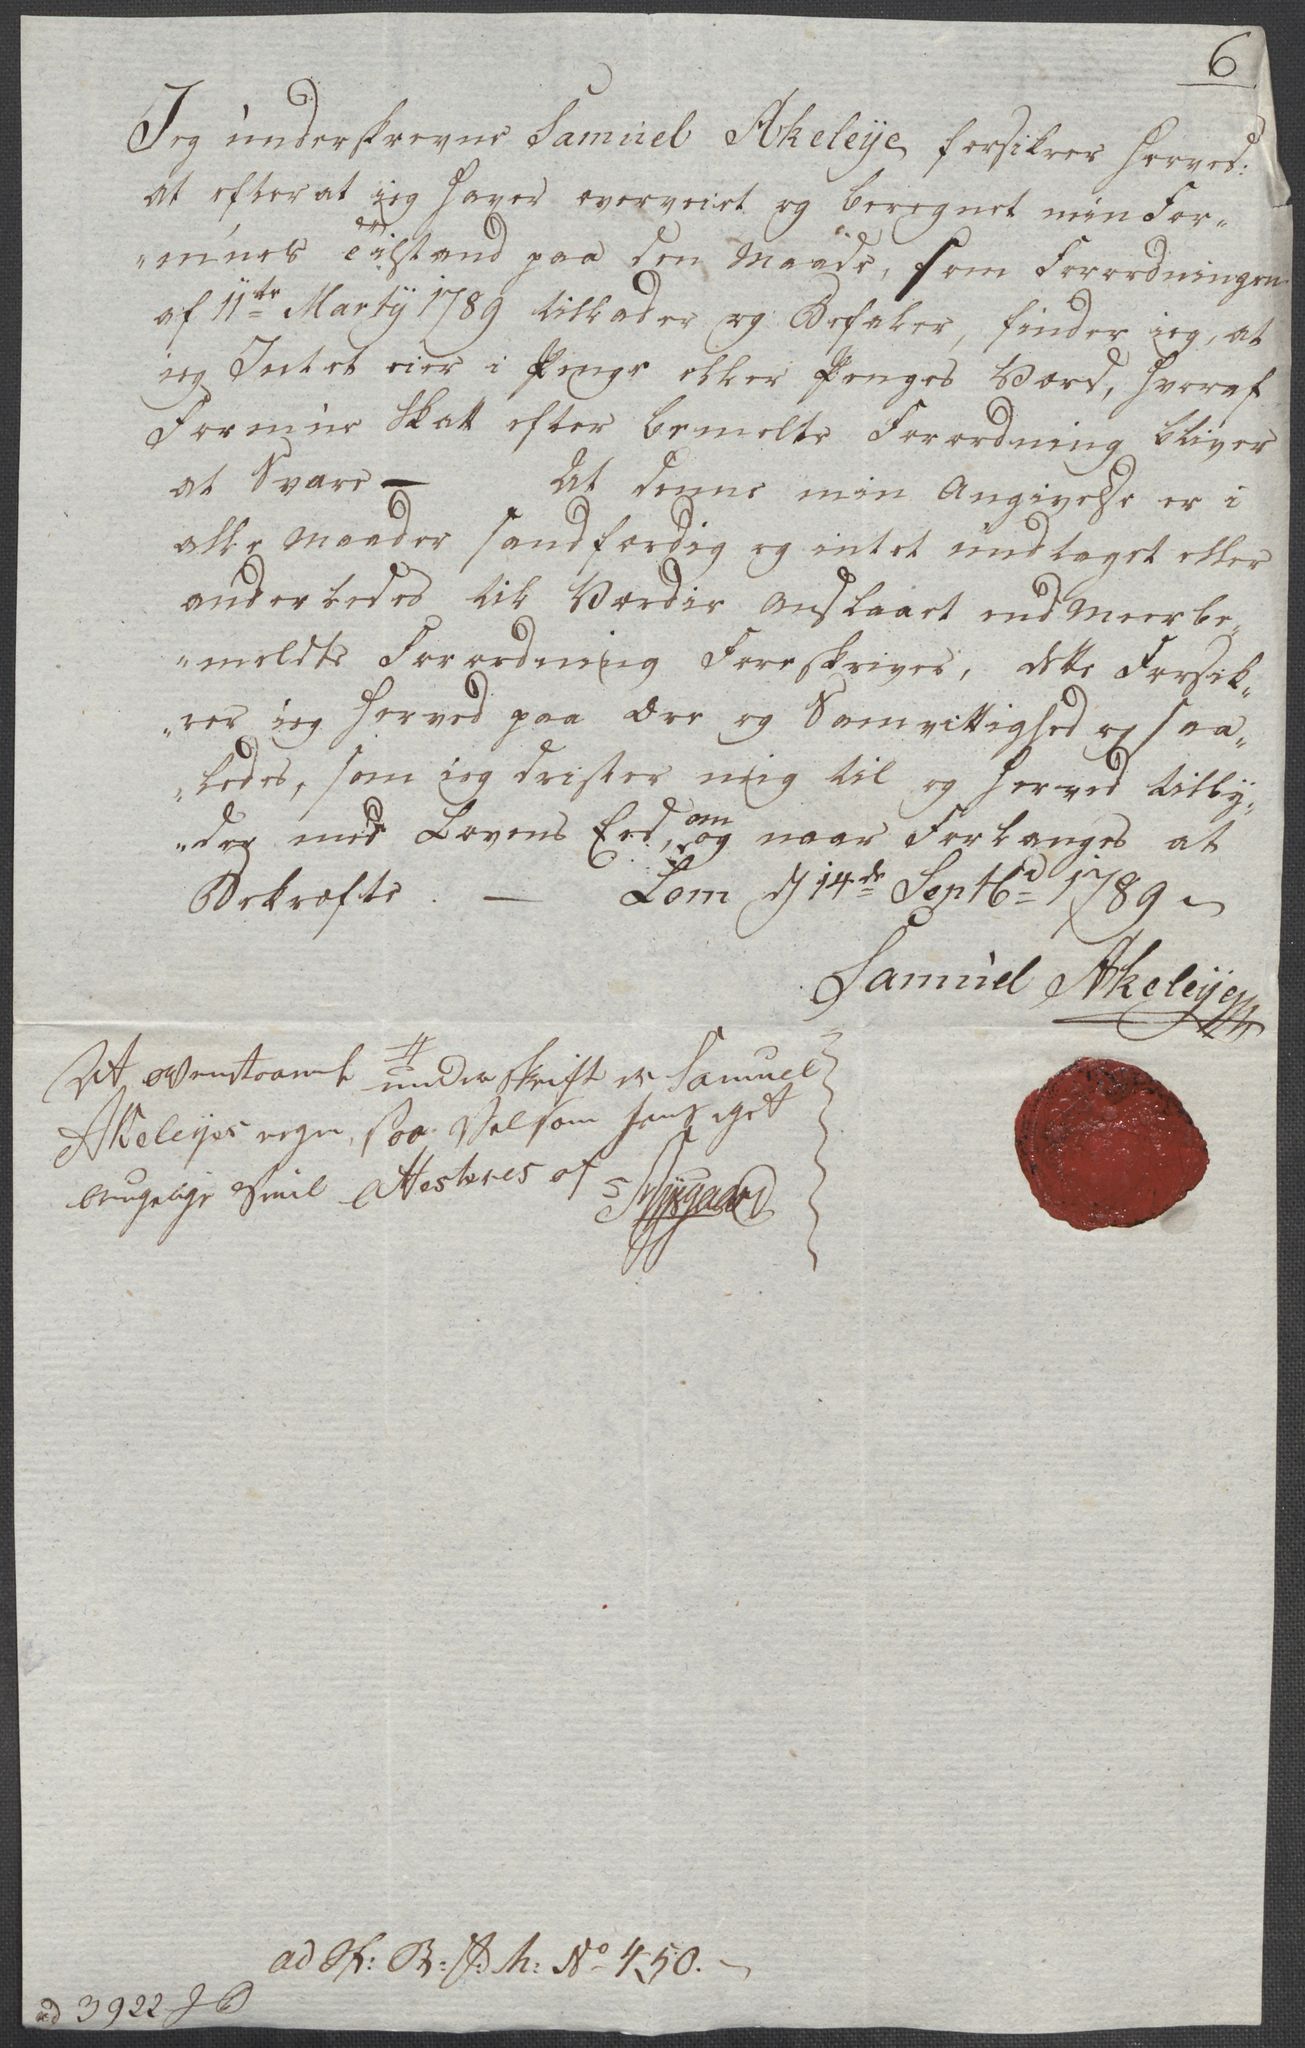 6
Jeg underskrevne Samuel Akeleÿe forsikrer herved:
at efter at jeg haver overveiet og beregnet min For„
„mues Tilstand paa den Maade, som Forordningen
af 11te Martÿ 1789 tillader og Befaler, finder jeg, at
jeg Intet eier i Penge eller Penges Værd, hvoraf
Formue Skatt efter bemelte Forordning bliver
at Svare — At denne min Angivelse er i
alle Maader sandfærdig og intet undtaget eller
anderledes til Værdie Anslaaet end Meerbe„
„meldte Forordning Foreskriver, dette Forsik„
„rer jeg herved paa Ære og Samvittighed og saa„
„ledes, som jeg drister mig til og herved tilby„
„der med Lovens Eed, om og naar Forlanges at
Bekræfte. — Lom d 14de Septbr 1789
Samuel Akeleÿe
At ovenstaaende underskrift er Samuel
Akeleÿes egen, saa Vel som hans eget
brugelige Seigl Attesteres af
ad R: No 450.
ad 3922